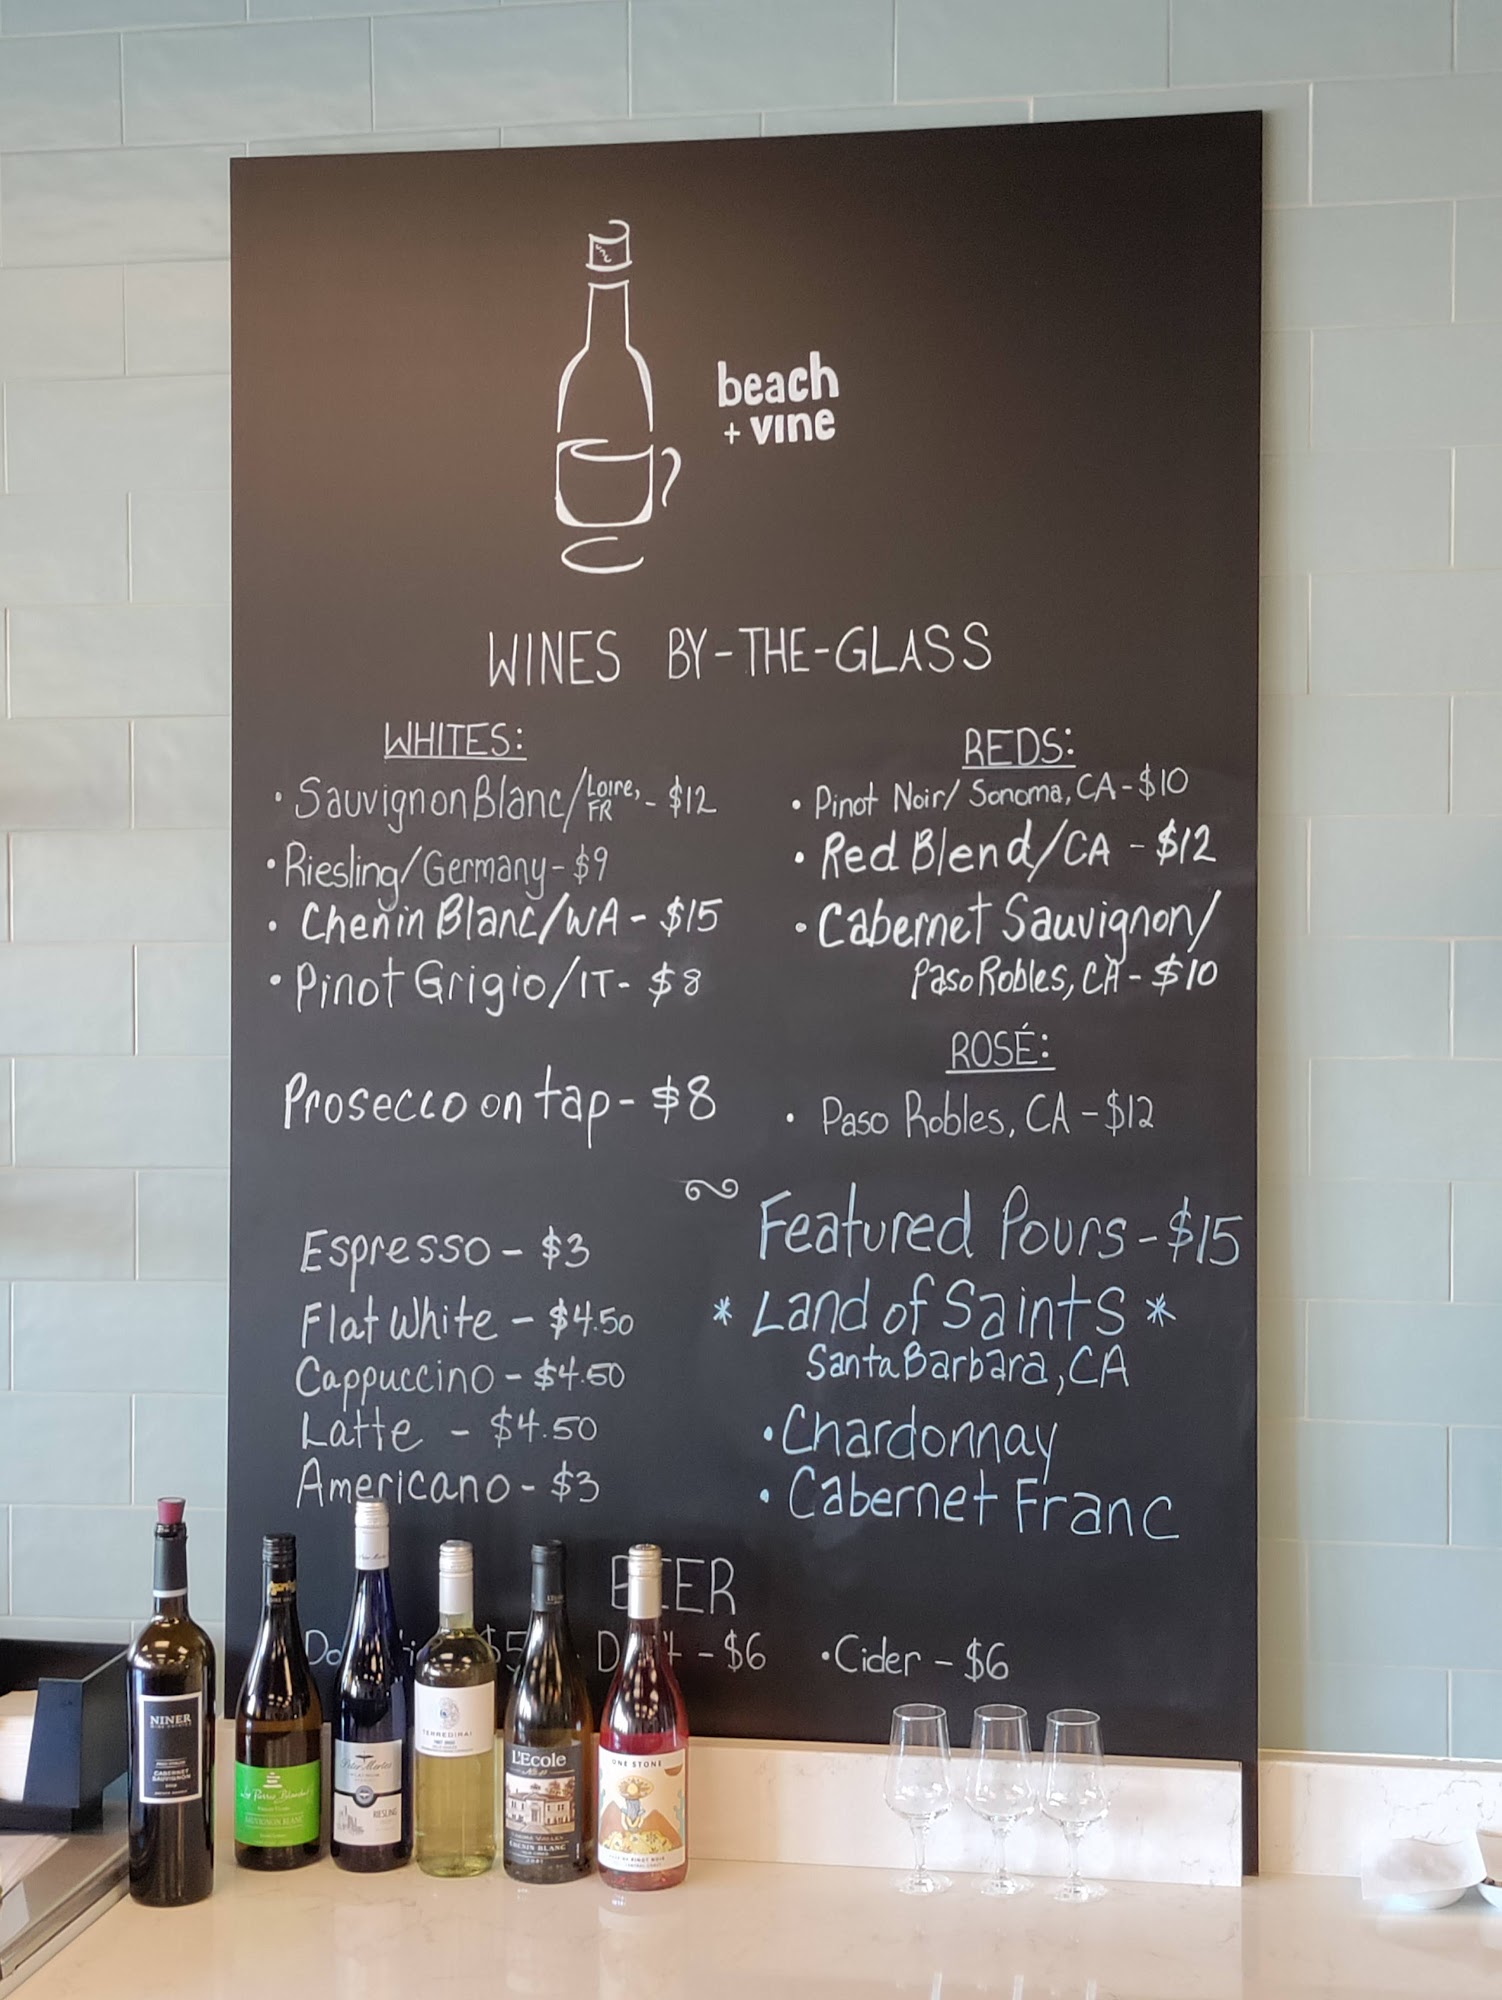 beach
+ vine
WINES BY-THE-GLASS
WHITES:
• Sauvignon Blanc/Loire, FR - $12
• Riesling/Germany - $9
• Chenin Blanc/WA - $15
• Pinot Grigio/IT - $8
Prosecco on tap - $8
REDS:
• Pinot Noir/ Sonoma, CA - $10
• Red Blend/CA - $12
• Cabernet Sauvignon/
Paso Robles, CA - $10
ROSÉ:
• Paso Robles, CA - $12
Espresso - $3
Flat White - $4.50
Cappuccino - $4.50
Latte - $4.50
Americano - $3
Featured Pours - $15
* Land of Saints *
Santa Barbara, CA
• Chardonnay
• Cabernet Franc
BEER
$5
- $6
• Cider - $6
NINER
CABERNET
SAUVIGNON
SAUVIGNON BLANC
Peter Mertes
RIESLING
TERREDIRAI
L'Ecole
No 41
CHENIN BLANC
ONE STONE
PINOT NOIR